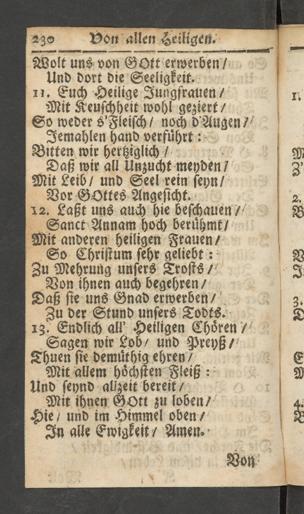 230 Von allen Heiligen.
Wolt uns von GOtt erwerben /
Und dort die Seeligkeit.
11. Euch Heilige Jungfrauen /
Mit Keuschheit wohl geziert /
So weder s'Fleisch / noch d'Augen /
Jemahlen hand verführt :
Bitten wir hertziglich /
Daß wir all Unzucht meyden /
Mit Leib / und Seel rein seyn /
Vor GOttes Angesicht.
12. Laßt uns auch hie beschauen /
Sanct Annam hoch berühmt /
Mit anderen heiligen Frauen /
So Christum sehr geliebt :
Zu Mehrung unsers Trosts /
Von ihnen auch begehren /
Daß sie uns Gnad erwerben /
Zu der Stund unsers Todts.
13. Endlich all' Heiligen Chören /
Sagen wir Lob / und Preyß /
Thuen sie demüthig ehren /
Mit allem höchsten Fleiß :
Und seynd allzeit bereit /
Mit ihnen GOtt zu loben /
Hie / und im Himmel oben /
In alle Ewigkeit / Amen.
Von
1.
2.
3.
4.